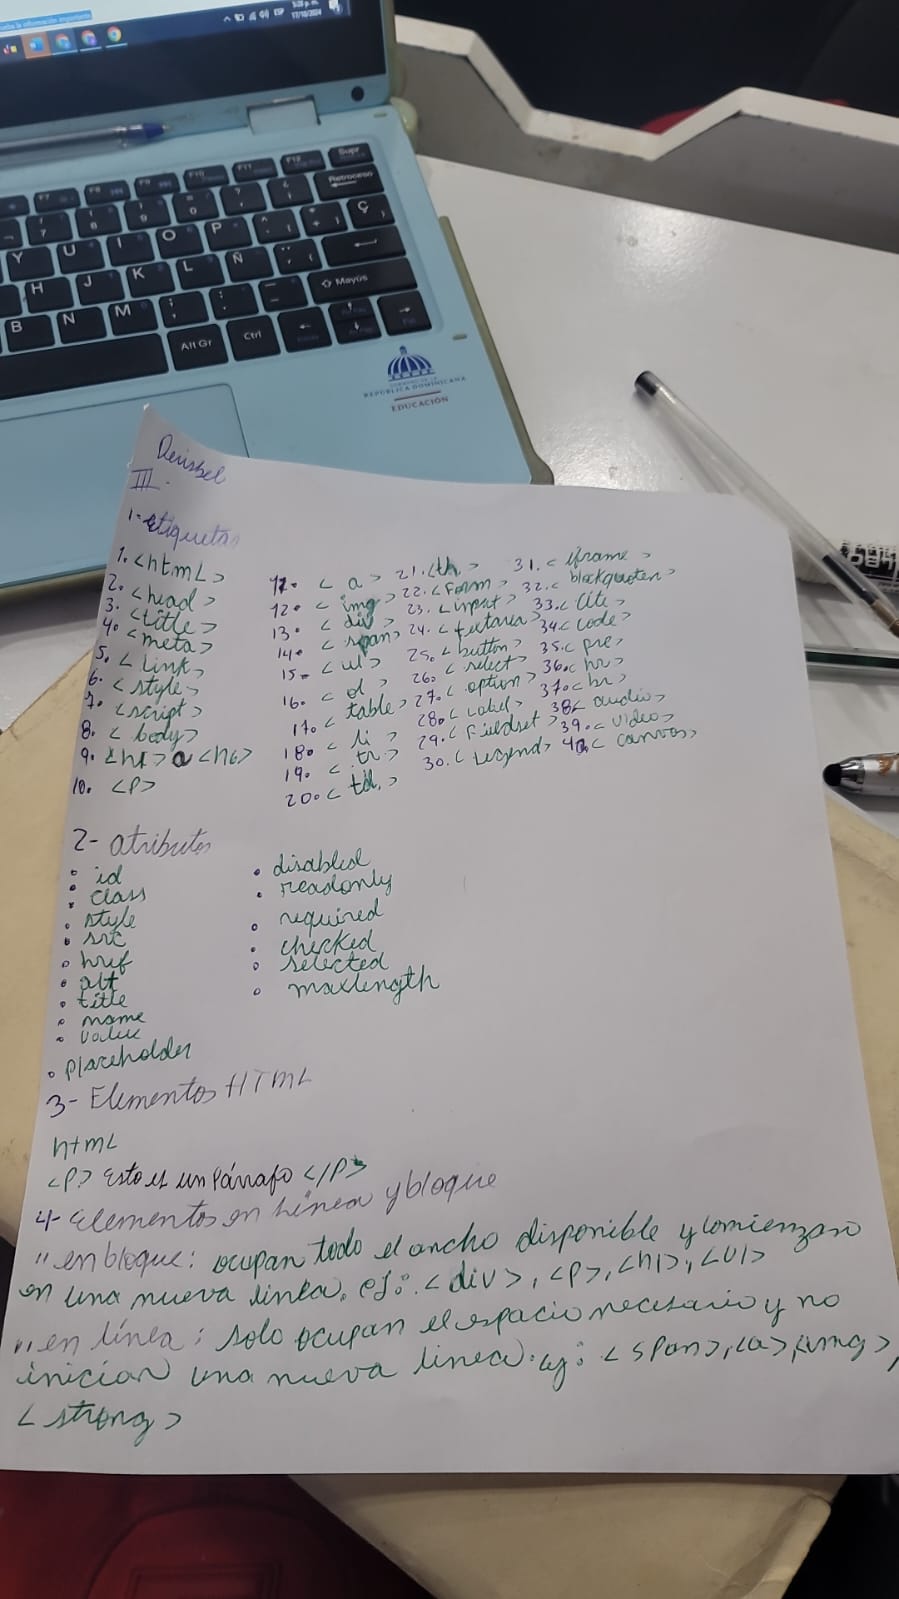 3:28 p. m.
17/10/2024
ESP
F7 F8 F9 F10 F11 F12 Supr
7 8 9 0 Retroceso
Y U I O P Ç
H J K L Ñ
B N M Mayús
Alt Gr Ctrl
REPÚBLICA DOMINICANA
EDUCACIÓN
Deisbel
III.
1-etiquetas
1. <html>
2. <head>
3. <title>
4. <meta>
5. <Link>
6. <style>
7. <script>
8. <body>
9. <h1> a <h6>
10. <P>
11. <a>
12. <img>
13. <div>
14. <span>
15. <ul>
16. <ol>
17. <table>
18. <li>
19. <tr>
20. <td.>
21. <th.>
22. <Form>
23. <input>
24. <
25. <button>
26. <select>
27. <option>
28. <Label>
29. <Fieldset>
30. <Legend>
31. <iframe>
32. <
33. <Cite>
34. <code>
35. <pre>
36. <hr>
37. <br>
38. <audio>
39. <video>
40. <canvas>
2- atributos
• id
• class
• style
• src
• href
• alt
• title
• name
• value
• placeholder
• disabled
• readonly
• required
• checked
• selected
• maxlength
3- Elementos HTML
html
<P> Esto es un Párrafo </P>
4- Elementos en Línea y bloque
" en bloque: ocupan todo el ancho disponible y comienzan
en una nueva linea. ej: <div>, <p>, <h1>, <ul>
" en línea: solo ocupan el espacio necesario y no
inician una nueva linea. ej: <span>, <a>, <img>,
<strong>